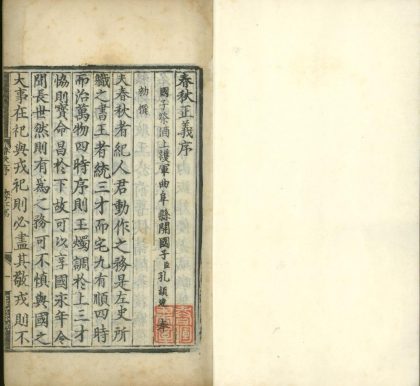 春秋正義序
國子祭酒上護軍曲阜縣開國子臣孔穎達奉
勑撰
夫春秋者紀人君動作之務是左史所
職之書王者統三才而宅九有順四時
而治萬物四時序則玉燭調於上三才
協則寶命昌於下故可以享國永年令
聞長世然則有為之務可不慎與國之
大事在祀與戎祀則必盡其敬戎則不